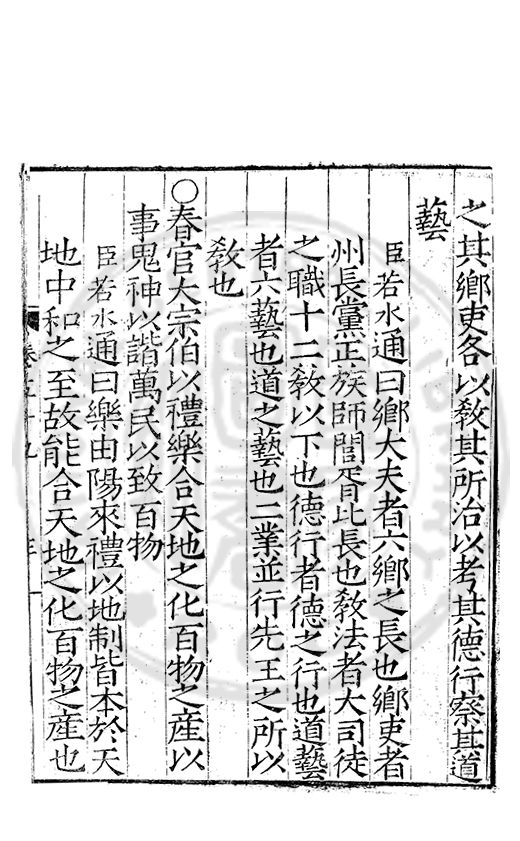 之其鄉吏各以敎其所治以考其德行察其道
藝
臣若水通曰鄉大夫者六鄉之長也鄉吏者
州長黨正族師閭胥比長也敎法者大司徒
之職十二敎以下也德行者德之行也道藝
者六藝也道之藝也二業並行先王之所以
敎也
○春官大宗伯以禮樂合天地之化百物之産以
事鬼神以諧萬民以致百物
臣若水通曰樂由陽來禮以地制皆本於天
地中和之至故能合天地之化百物之産也